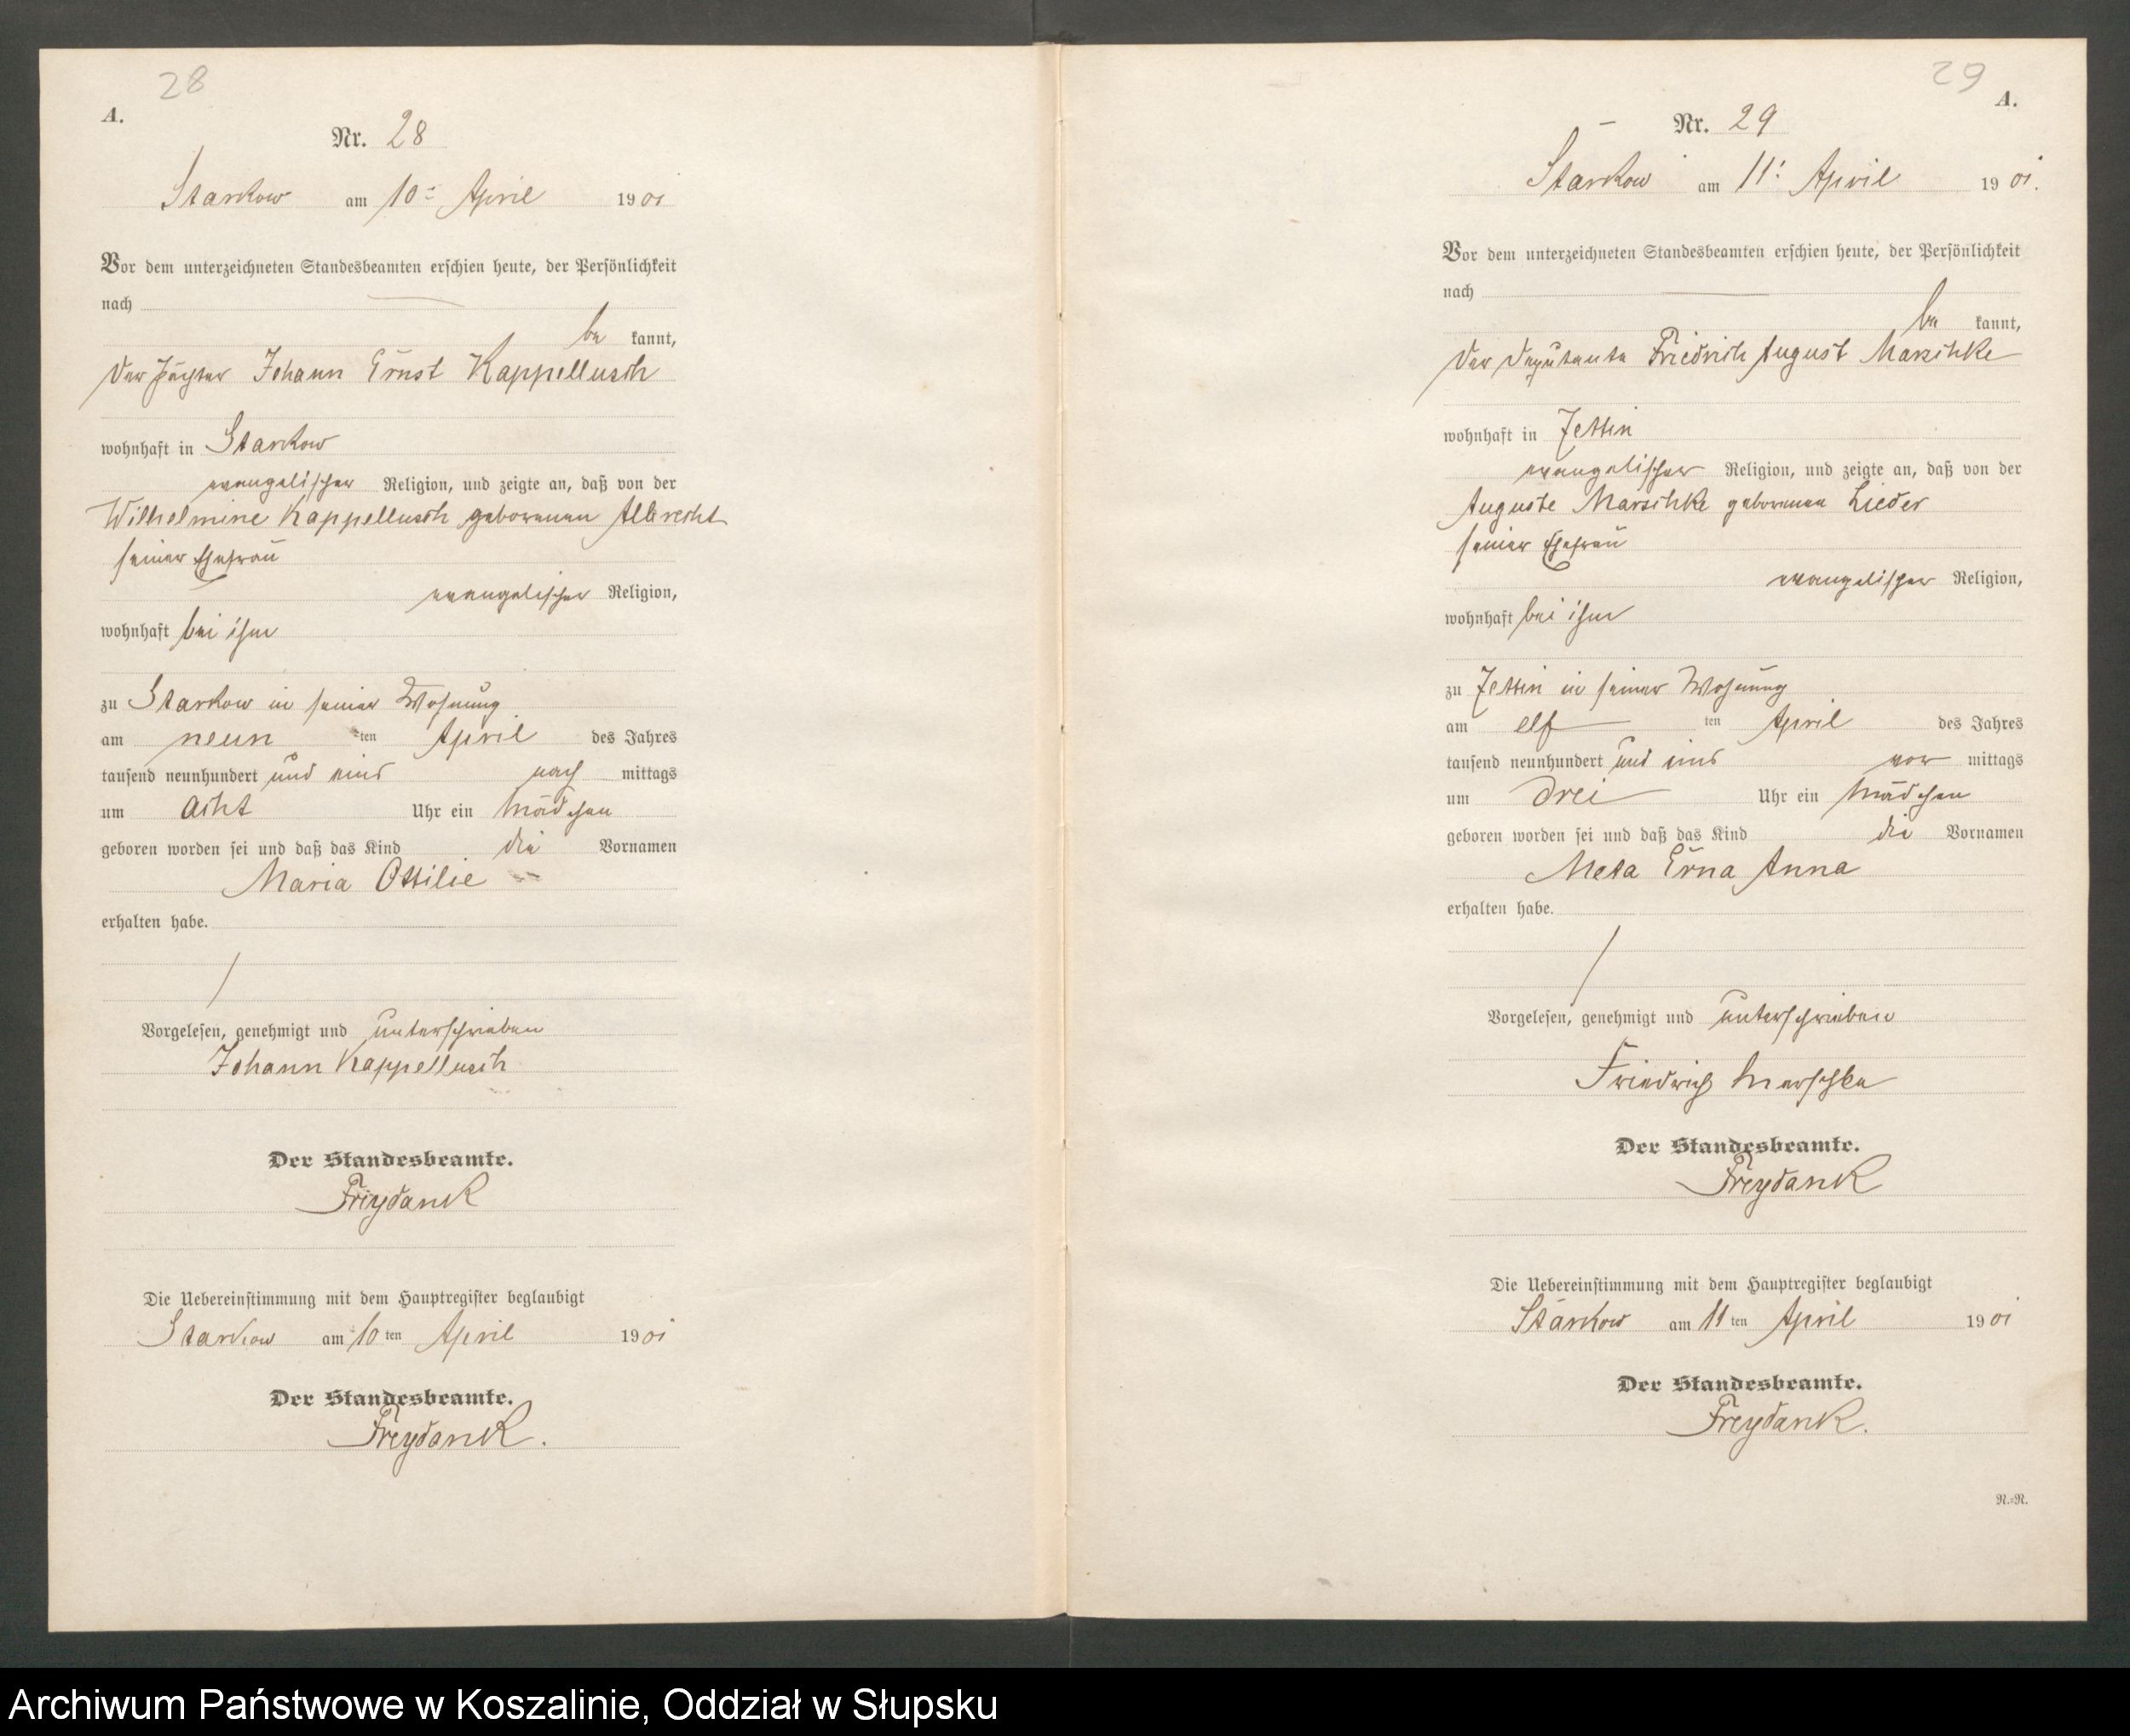 28
A.
Nr. 28
Starkow am 10ᵗ April 1901
Vor dem unterzeichneten Standesbeamten erschien heute, der Persönlichkeit
nach
be kannt,
der Pächter Johann Ernst Kappellusch
wohnhaft in Starkow
evangelischer Religion, und zeigte an, daß von der
Wilhelmine Kappellusch geborenen Albrecht
seiner Ehefrau
evangelischer Religion,
wohnhaft bei ihm
zu Starkow in seiner Wohnung
am neun ten April des Jahres
tausend neunhundert und eins nach mittags
um acht Uhr ein Mädchen
geboren worden sei und daß das Kind die Vornamen
Maria Ottilie
erhalten habe.
Vorgelesen, genehmigt und unterschrieben
Johann Kappellusch
Der Standesbeamte.
Freydank
Die Uebereinstimmung mit dem Hauptregister beglaubigt
Starkow am 10 ten April 1901
Der Standesbeamte.
Freydank.
29
A.
Nr. 29
Starkow am 11ᵗ April 1901.
Vor dem unterzeichneten Standesbeamten erschien heute, der Persönlichkeit
nach
be kannt,
der Deputante Friedrich August Marschke
wohnhaft in Jettin
evangelischer Religion, und zeigte an, daß von der
Auguste Marschke geborenen Lieder
seiner Ehefrau
evangelischer Religion,
wohnhaft bei ihm
zu Jettin in seiner Wohnung
am elf ten April des Jahres
tausend neunhundert und eins vor mittags
um drei Uhr ein Mädchen
geboren worden sei und daß das Kind die Vornamen
Meta Erna Anna
erhalten habe.
Vorgelesen, genehmigt und unterschrieben
Friedrich Marschke
Der Standesbeamte.
Freydank
Die Uebereinstimmung mit dem Hauptregister beglaubigt
Starkow am 11 ten April 1901
Der Standesbeamte.
Freydank.
N.=R.
Archiwum Państwowe w Koszalinie, Oddział w Słupsku